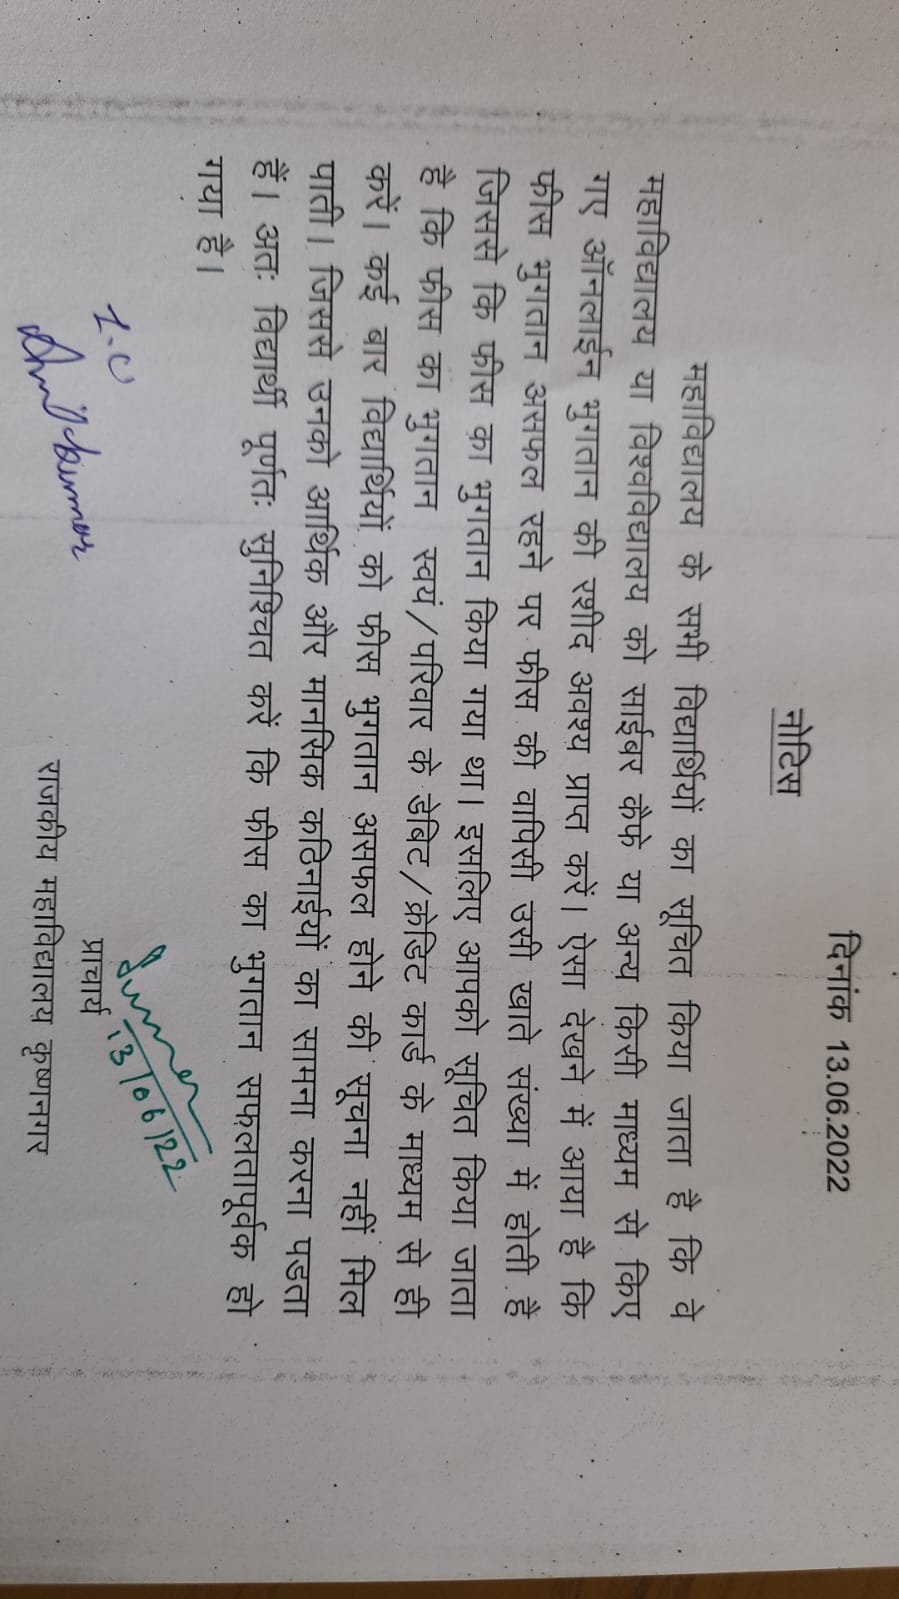 दिनांक 13.06.2022
नोटिस
महाविद्यालय के सभी विद्यार्थियों का सूचित किया जाता है कि वे
महाविद्यालय या विश्वविद्यालय को साईबर कैफे या अन्य किसी माध्यम से किए
गए ऑनलाईन भुगतान की रशीद अवश्य प्राप्त करें। ऐसा देखने में आया है कि
फीस भुगतान असफल रहने पर फीस की वापिसी उसी खाते संख्या में होती है
जिससे कि फीस का भुगतान किया गया था। इसलिए आपको सूचित किया जाता
है कि फीस का भुगतान स्वयं/परिवार के डेबिट/क्रेडिट कार्ड के माध्यम से ही
करें। कई बार विद्यार्थियों को फीस भुगतान असफल होने की सूचना नहीं मिल
पाती। जिससे उनको आर्थिक और मानसिक कठिनाईयों का सामना करना पडता
हैं। अतः विद्यार्थी पूर्णतः सुनिश्चित करें कि फीस का भुगतान सफलतापूर्वक हो
गया है।
13/06/22
प्राचार्य
राजकीय महाविद्यालय कृष्णनगर